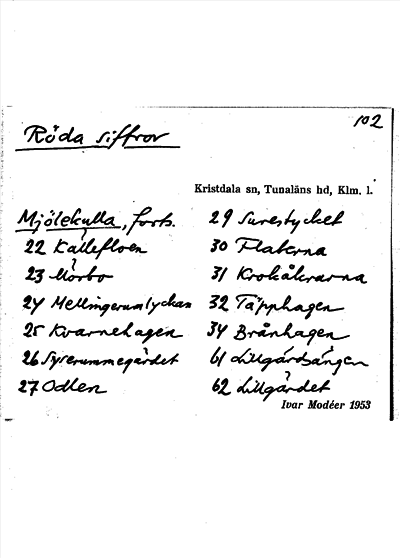 102
Röda siffror
Kristdala sn, Tunaläns hd, Klm. l.
Mjölekulla, forts.
22 Källefloen
23 Mörbo
24 Mellingerumlyckan
25 Kvarnehagen
26 Syrerummegärdet
27 Odlen
29 Surestycket
30 Flakerna
31 Krokåkrarna
32 Täpphagen
34 Brånhagen
61 Lillgårdsängen
62 Lillgärdet
Ivar Modéer 1953